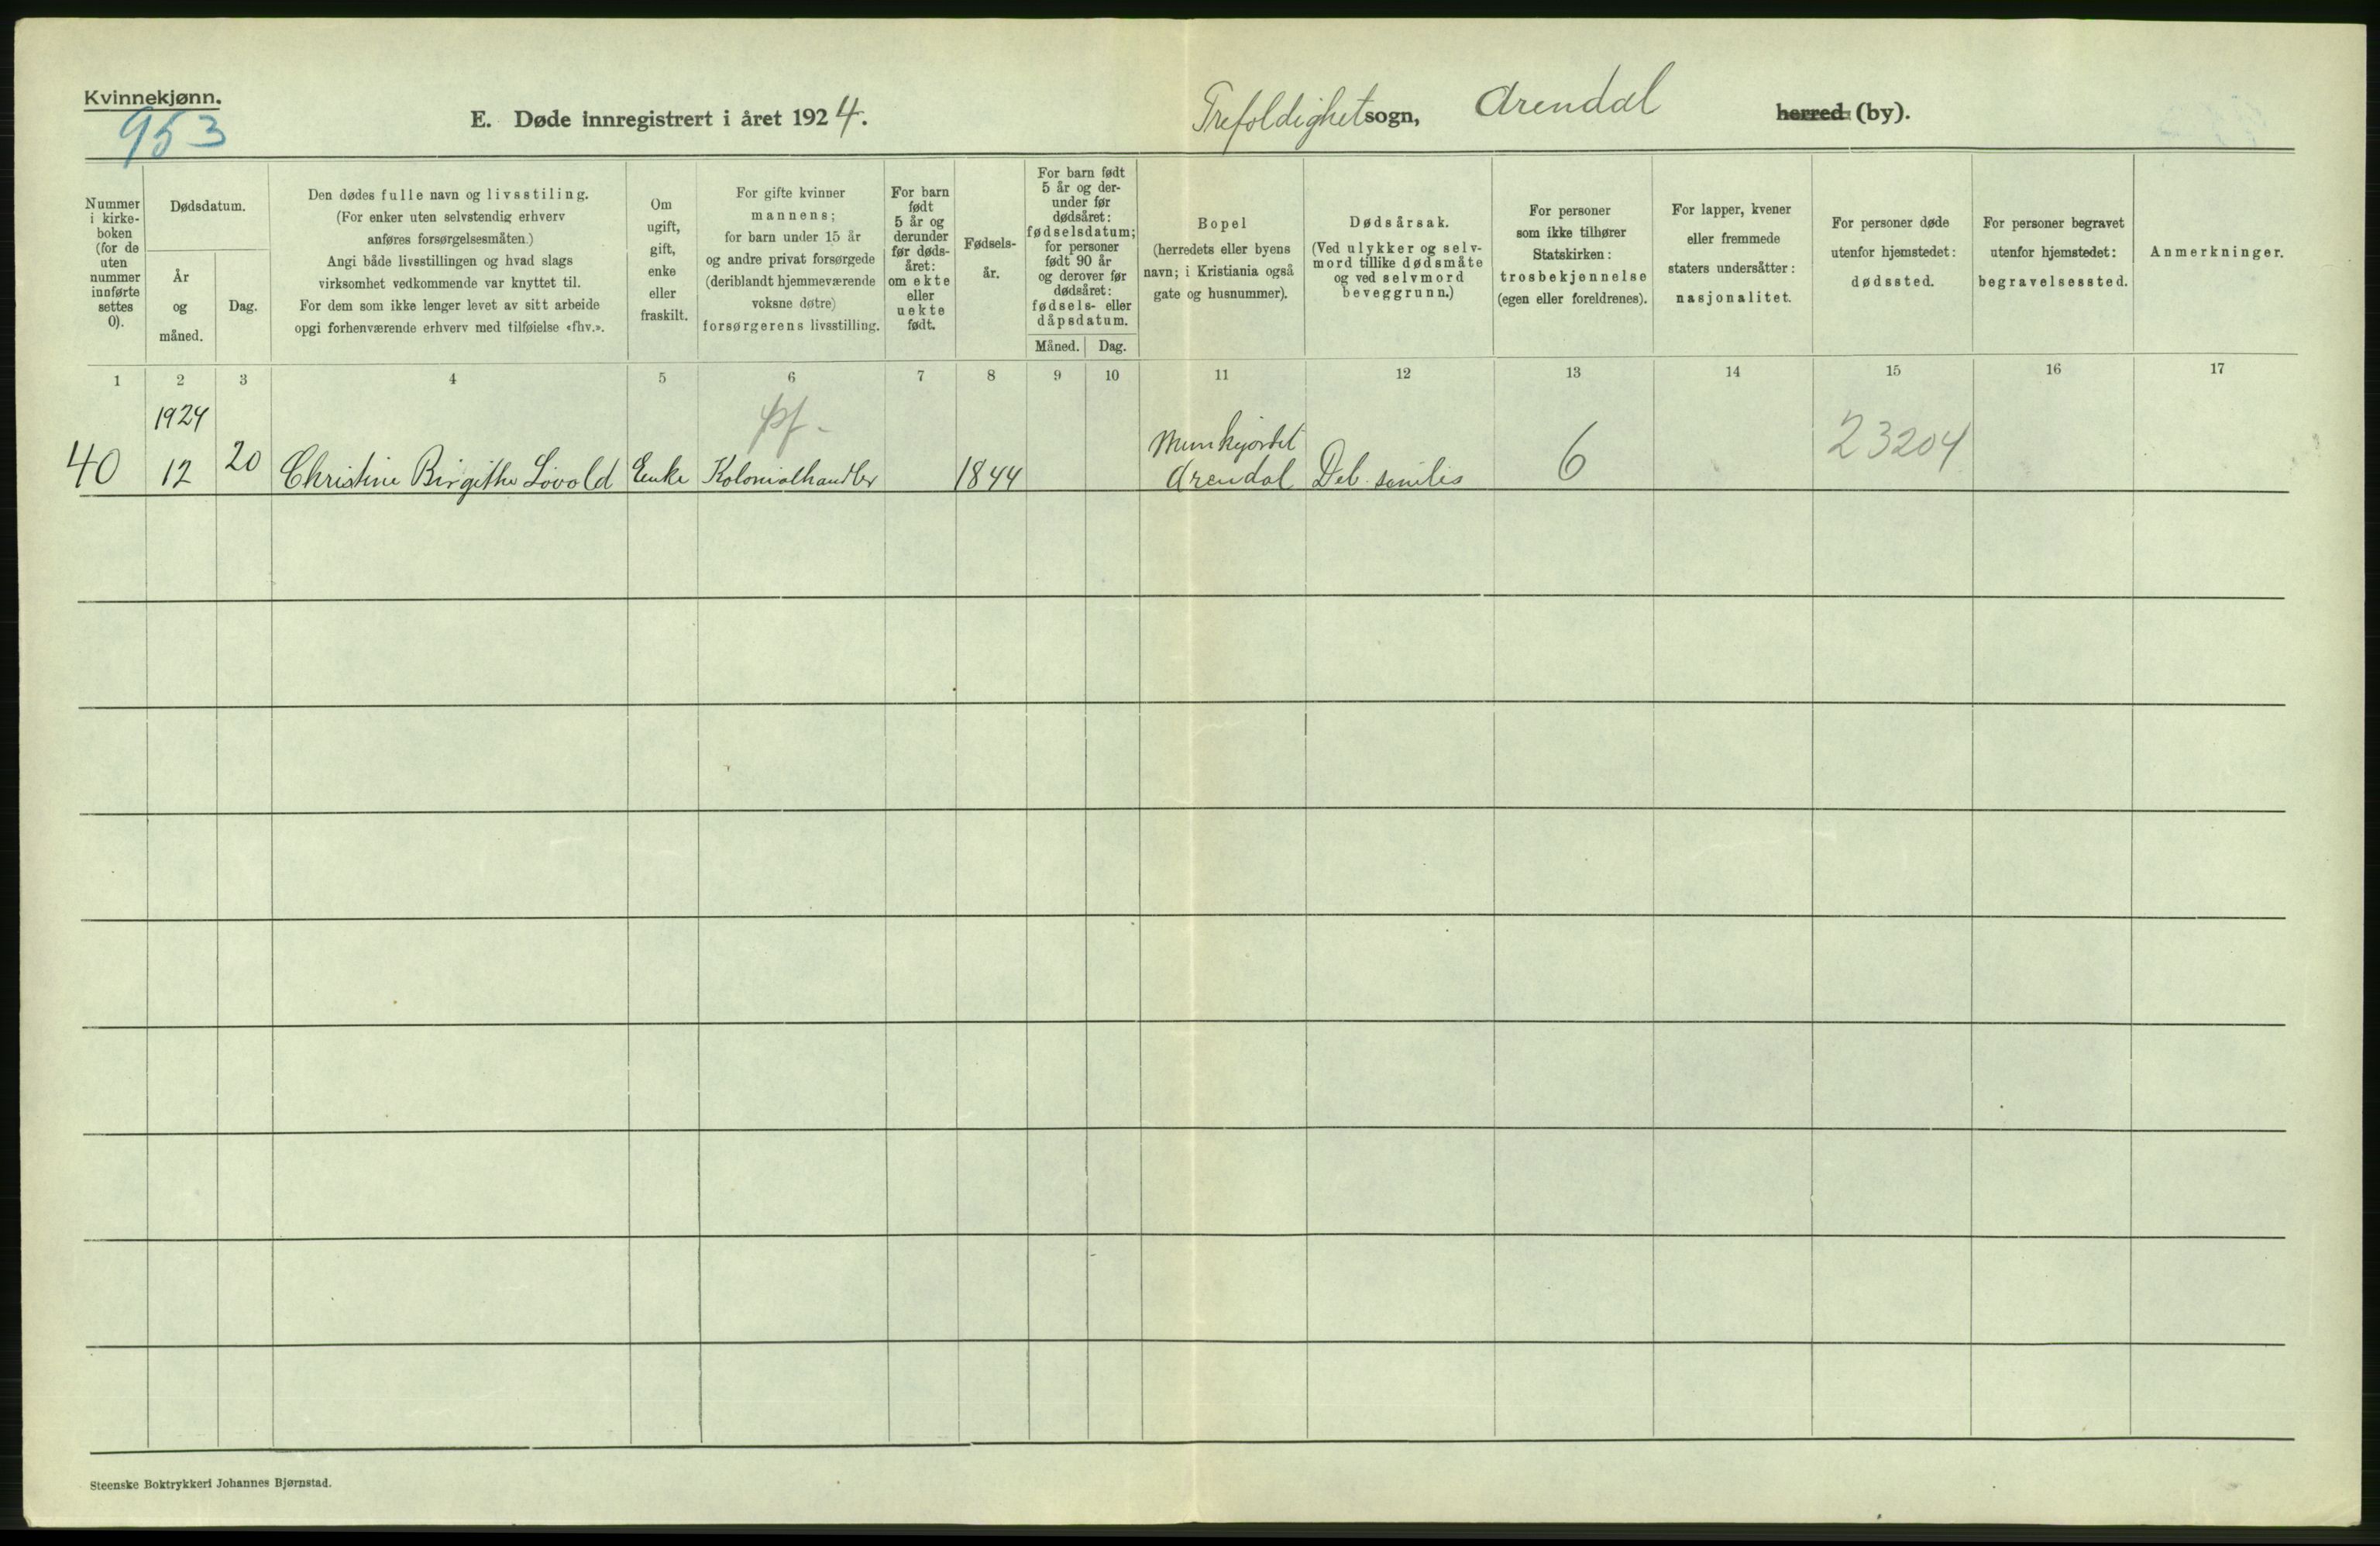 Kvinnekjønn.
953
E. Døde innregistrert i året 1924.
Trefoldighet sogn, Arendal herred (by).
Nummer
i kirke-
boken
(for de
uten
nummer
innførte
settes
0).
Dødsdatum.
År
og
måned.
Dag.
Den dødes fulle navn og livsstiling.
(For enker uten selvstendig erhverv
anføres forsørgelsesmåten.)
Angi både livsstillingen og hvad slags
virksomhet vedkommende var knyttet til.
For dem som ikke lenger levet av sitt arbeide
opgi forhenværende erhverv med tilføielse «fhv.».
Om
ugift,
gift,
enke
eller
fraskilt.
For gifte kvinner
mannens;
for barn under 15 år
og andre privat forsørgede
(deriblandt hjemmeværende
voksne døtre)
forsørgerens livsstilling.
For barn
født
5 år og
derunder
før døds-
året:
om ekte
eller
uekte
født.
Fødsels-
år.
For barn født
5 år og der-
under før
dødsåret:
fødselsdatum;
for personer
født 90 år
og derover før
dødsåret:
fødsels- eller
dåpsdatum.
Måned. Dag.
Bopel
(herredets eller byens
navn; i Kristiania også
gate og husnummer).
Dødsårsak.
(Ved ulykker og selv-
mord tillike dødsmåte
og ved selvmord
beveggrunn.)
For personer
som ikke tilhører
Statskirken:
trosbekjennelse
(egen eller foreldrenes).
For lapper, kvener
eller fremmede
staters undersåtter:
nasjonalitet.
For personer døde
utenfor hjemstedet:
dødssted.
For personer begravet
utenfor hjemstedet:
begravelsessted.
Anmerkninger.
1 2 3 4 5 6 7 8 9 10 11 12 13 14 15 16 17
1924
Munkejordet
23204
40 12 20 Christine Birgithe Løvold Enke Kolonialhandler 1844 Arendal Deb. senilis 6
Steenske Boktrykkeri Johannes Bjørnstad.